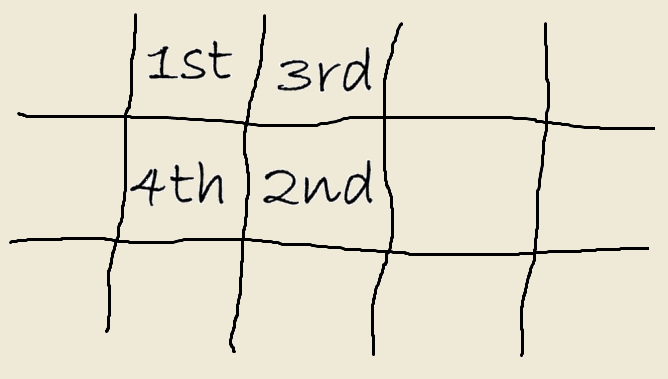 1st 3rd
4th 2nd